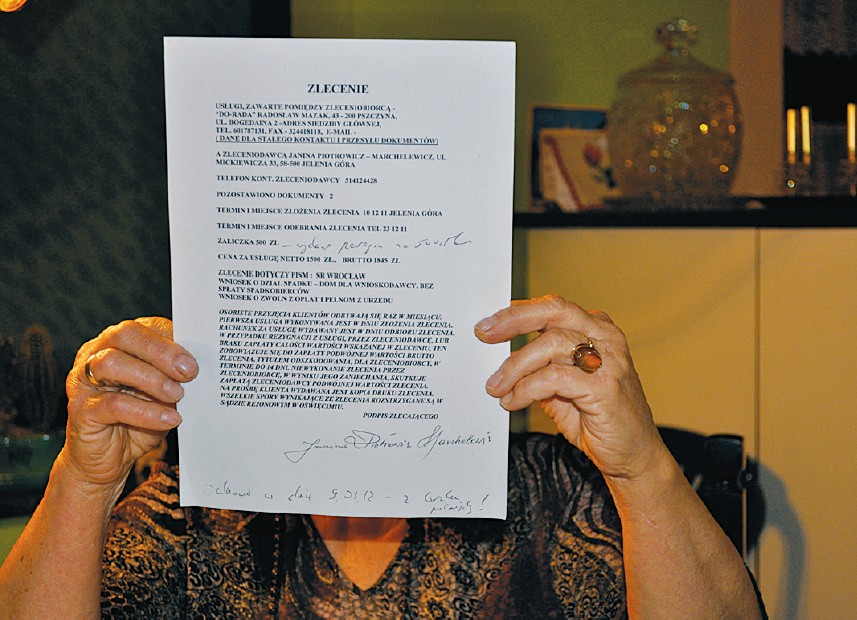 ZLECENIE
USŁUGI, ZAWARTE POMIĘDZY ZLECENIOBIORCĄ -
"DO-RADA" RADOSŁAW MAZAK, 43 - 200 PSZCZYNA,
UL. BOGEDAINA 2 -ADRES SIEDZIBY GŁÓWNEJ,
TEL. 601707131, FAX - 324418118, E-MAIL -
( DANE DLA STAŁEGO KONTAKTU I PRZESYŁU DOKUMENTÓW)
A ZLECENIODAWCĄ JANINA PIOTROWICZ – MARCHELEWICZ, UL
MICKIEWICZA 33, 58-500 JELENIA GÓRA
TELEFON KONT. ZLECENIODAWCY 514124428
POZOSTAWIONO DOKUMENTY 2
TERMIN I MIEJSCE ZŁOŻENIA ZLECENIA 10 12 11 JELENIA GÓRA
TERMIN I MIEJSCE ODEBRANIA ZLECENIA TEL 23 12 11
ZALICZKA 500 ZŁ - wydano paragon na
CENA ZA USŁUGĘ NETTO 1500 ZŁ, BRUTTO 1845 ZŁ
ZLECENIE DOTYCZY PISM : SR WROCŁAW
WNIOSEK O DZIAŁ SPADKU – DOM DLA WNIOSKODAWCY, BEZ
SPŁATY SPADKOBIERCÓW
WNIOSEK O ZWOLN Z OPŁAT I PEŁNOM Z URZEDU
OSOBISTE PRZYJĘCIA KLIENTÓW ODBYWAJĄ SIĘ RAZ W MIESIĄCU.
PIERWSZA USŁUGA WYKONYWANA JEST W DNIU ZŁOŻENIA ZLECENIA,
RACHUNEK ZA USŁUGĘ WYDAWANY JEST W DNIU ODBIORU ZLECENIA.
W PRZYPADKU REZYGNACJI Z USŁUGI, PRZEZ ZLECENIODAWCĘ, LUB
BRAKU ZAPŁATY CAŁOŚCI WARTOŚCI WSKAZANEJ W ZLECENIU, TEN
ZOBOWIĄZUJE SIĘ DO ZAPŁATY PODWÓJNEJ WARTOŚCI BRUTTO
ZLECENIA, TYTUŁEM ODSZKODOWANIA, DLA ZLECENIOBIORCY, W
TERMINIE DO 14 DNI. NIEWYKONANIE ZLECENIA PRZEZ
ZLECENIOBIORCĘ, W WYNIKU JEGO ZANIECHANIA, SKUTKUJE
ZAPŁATĄ ZLECENIODAWCY PODWÓJNEJ WARTOŚCI ZLECENIA.
NA PROŚBĘ KLIENTA WYDAWANA JEST KOPIA DRUKU ZLECENIA.
WSZELKIE SPORY WYNIKAJĄCE ZE ZLECENIA ROZSTRZYGANE SĄ W
SĄDZIE REJONOWYM W OŚWIĘCIMIU.
PODPIS ZLECAJĄCEGO
Janina Piotrowicz Marchelewicz